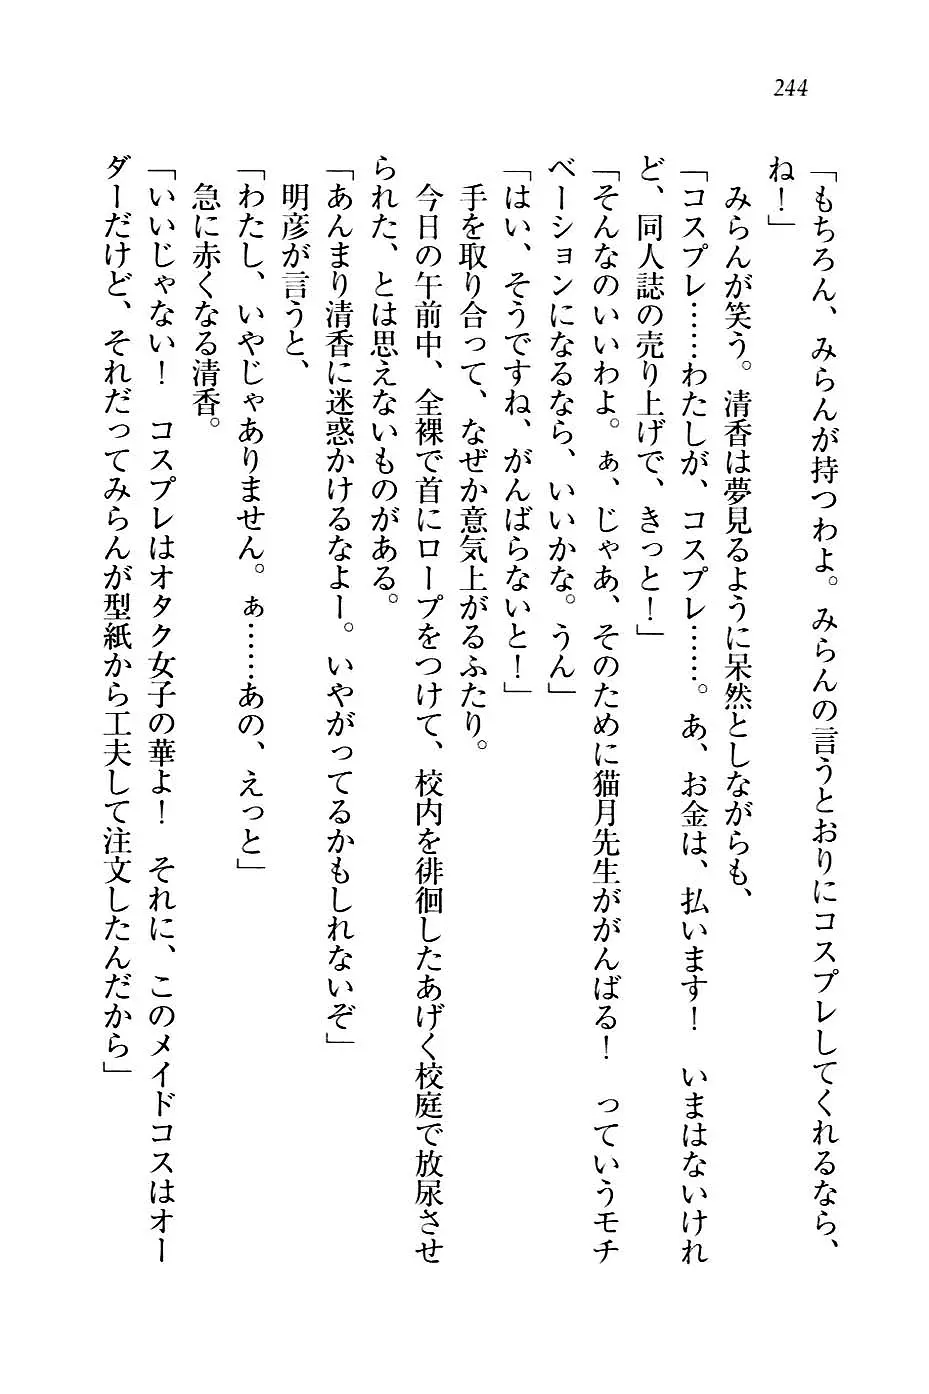 244
「もちろん、みらんが持つわよ。みらんの言うとおりにコスプレしてくれるなら、
ね！」
　みらんが笑う。清香は夢見るように呆然としながらも、
「コスプレ……わたしが、コスプレ……。あ、お金は、払います！　いまはないけれ
ど、同人誌の売り上げで、きっと！」
「そんなのいいわよ。ぁ、じゃあ、そのために猫月先生ががんばる！　っていうモチ
ベーションになるなら、いいかな。うん」
「はい、そうですね、がんばらないと！」
　手を取り合って、なぜか意気上がるふたり。
　今日の午前中、全裸で首にロープをつけて、校内を徘徊したあげく校庭で放尿させ
られた、とは思えないものがある。
「あんまり清香に迷惑かけるなよー。いやがってるかもしれないぞ」
　明彦が言うと、
「わたし、いやじゃありません。ぁ……あの、えっと」
　急に赤くなる清香。
「いいじゃない！　コスプレはオタク女子の華よ！　それに、このメイドコスはオー
ダーだけど、それだってみらんが型紙から工夫して注文したんだから」